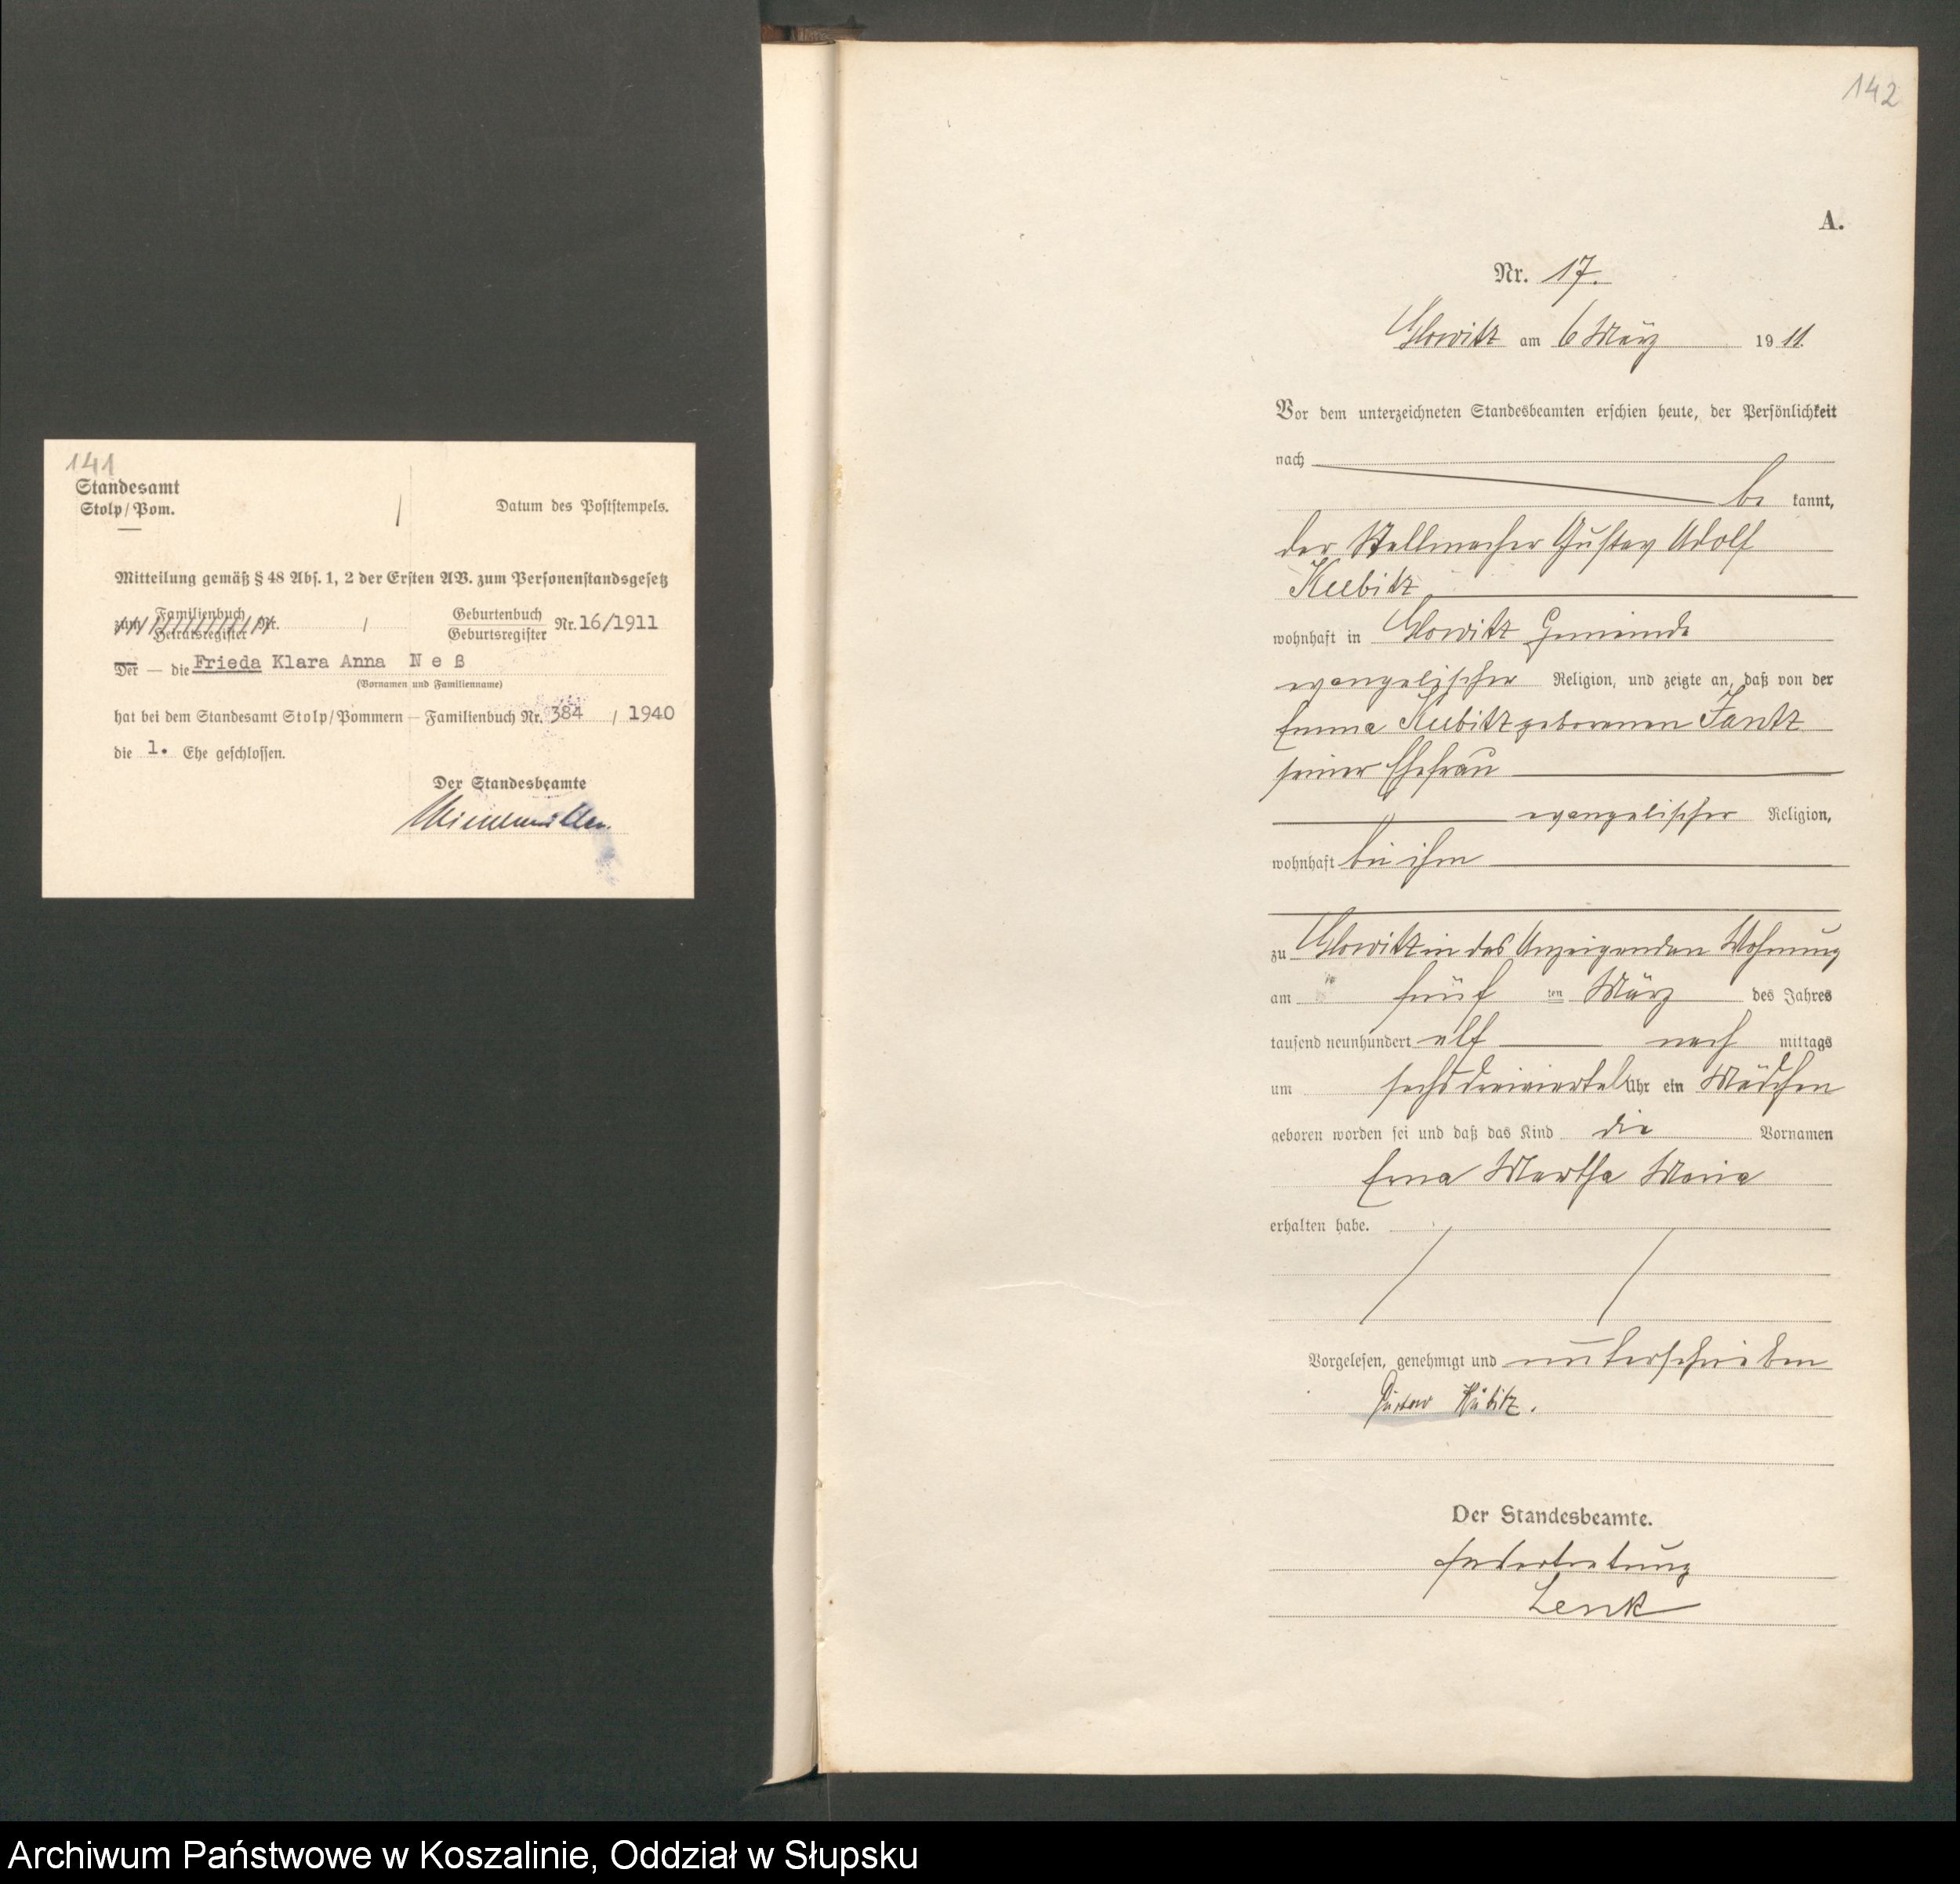 141
Standesamt
Stolp/Pom.
Datum des Poststempels.
Mitteilung gemäß § 48 Abs. 1, 2 der Ersten AV. zum Personenstandsgesetz
zum Familienbuch Nr. /
Heiratsregister
Geburtenbuch
Geburtsregister Nr. 16/1911
Der — die Frieda Klara Anna Neß
(Vornamen und Familienname)
hat bei dem Standesamt Stolp/Pommern — Familienbuch Nr. 384 / 1940
die 1. Ehe geschlossen.
Der Standesbeamte
142
A.
Nr. 17.
Glowitz am 6 März 1911.
Vor dem unterzeichneten Standesbeamten erschien heute, der Persönlichkeit
nach
be kannt,
der Stellmacher Gustav Adolf
Kubitz
wohnhaft in Glowitz Gemeinde
evangelischer Religion, und zeigte an, daß von der
Emma Kubitz geborenen Jantz
seiner Ehefrau
evangelischer Religion,
wohnhaft bei ihm
zu Glowitz in des Anzeigenden Wohnung
am fünf ten März des Jahres
tausend neunhundert elf nach mittags
um sechsdreiviertel Uhr ein Mädchen
geboren worden sei und daß das Kind die Vornamen
Erna Martha Maria
erhalten habe.
Vorgelesen, genehmigt und unterschrieben
Gustav Kubitz.
Der Standesbeamte.
In Vertretung
Lenk
Archiwum Państwowe w Koszalinie, Oddział w Słupsku